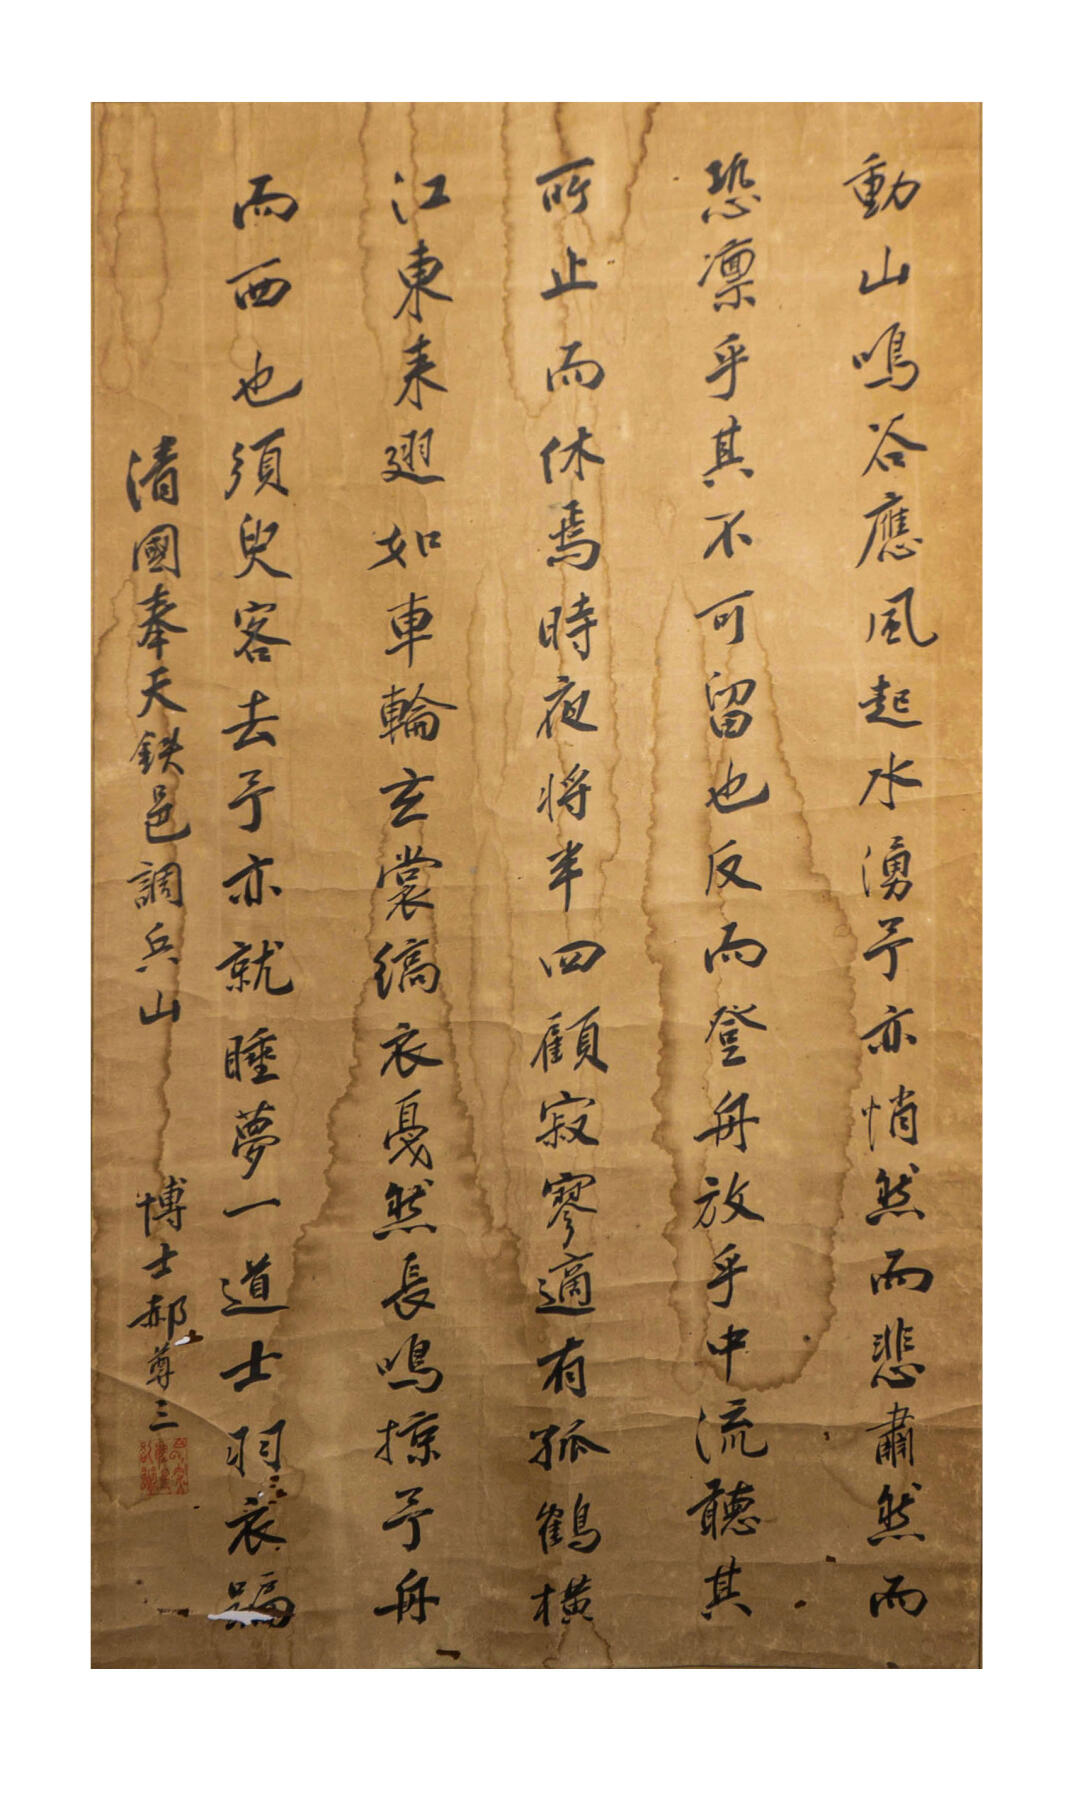 動山鳴谷應風起水湧予亦悄然而悲肅然而
恐凛乎其不可留也反而登舟放乎中流聽其
所止而休焉時夜将半四顧寂寥適有孤鶴横
江東来翅如車輪玄裳縞衣戛然長鳴掠予舟
而西也須臾客去予亦就睡夢一道士羽衣蹁
清國奉天鉄邑調兵山 博士郝尊三